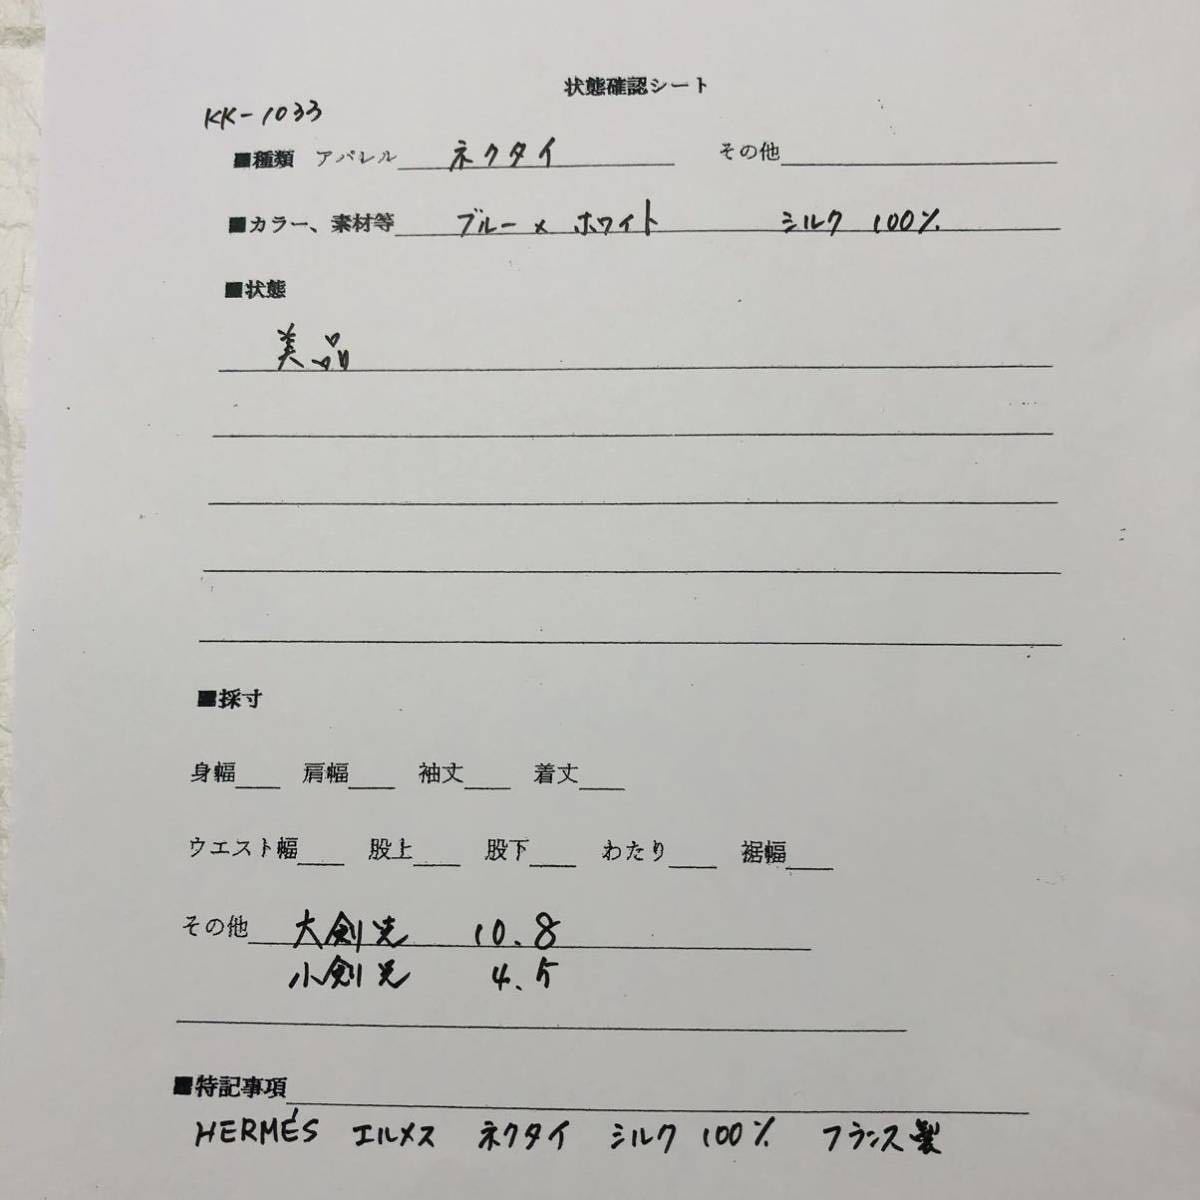 状態確認シート
KK-1033
■種類 アパレル ネクタイ その他
■カラー、素材等 ブルー×ホワイト シルク 100%
■状態
美品
■採寸
身幅 肩幅 袖丈 着丈
ウエスト幅 股上 股下 わたり 裾幅
その他 大剣先 10.8
小剣先 4.5
■特記事項
HERMÉS エルメス ネクタイ シルク 100% フランス製